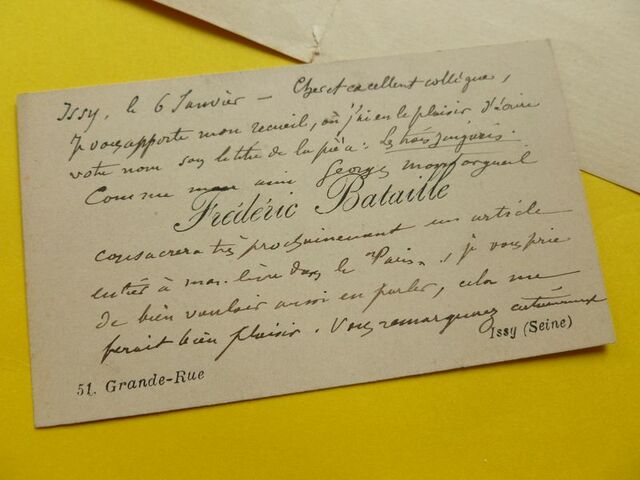 Issy, le 6 Janvier — Cher et excellent collègue,
Je vous apporte mon recueil, où j'ai eu le plaisir d'écrire
votre nom sous le titre de la pièce : Les trois
Comme mon ami Georges Montorgueil
Frédéric Bataille
consacrera très prochainement un article
entier à mon livre dans le "Paris", je vous prie
de bien vouloir aussi en parler, cela me
ferait bien plaisir. Vous remarquerez
51, Grande-Rue
Issy (Seine)